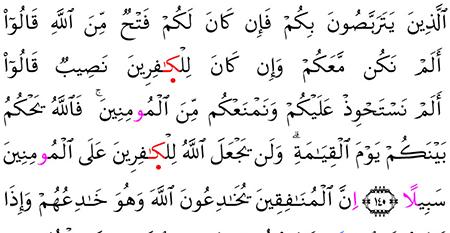 ٱلَّذِينَ يَتَرَبَّصُونَ بِكُمْ فَإِن كَانَ لَكُمْ فَتْحٌ مِّنَ ٱللَّهِ قَالُوٓا۟
أَلَمْ نَكُن مَّعَكُمْ وَإِن كَانَ لِلْكَٰفِرِينَ نَصِيبٌ قَالُوٓا۟
أَلَمْ نَسْتَحْوِذْ عَلَيْكُمْ وَنَمْنَعْكُم مِّنَ ٱلْمُومِنِينَ ۚ فَٱللَّهُ يَحْكُمُ
بَيْنَكُمْ يَوْمَ ٱلْقِيَٰمَةِ ۗ وَلَن يَجْعَلَ ٱللَّهُ لِلْكَٰفِرِينَ عَلَى ٱلْمُومِنِينَ
سَبِيلًا ﴿١٤٠﴾ إِنَّ ٱلْمُنَٰفِقِينَ يُخَٰدِعُونَ ٱللَّهَ وَهْوَ خَٰدِعُهُمْ وَإِذَا